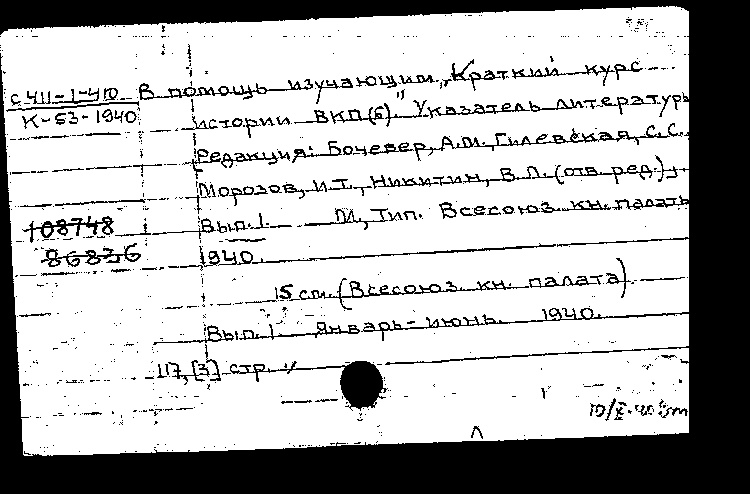 с 411-1-40 В помощь изучающим „Краткий курс
К-53-1940 истории ВКП(б)." Указатель литературы
Редакция: Бочевер, А.М., Гилевская, С.С.,
Морозов, И.Т., Никитин, В.П. (отв. ред.).
108748 Вып. 1. М, Тип. Всесоюз. кн. палаты
86836 1940.
15 см. (Всесоюз. кн. палата)
Вып. 1 Январь-июнь. 1940.
117, [3] стр.
10/X-40